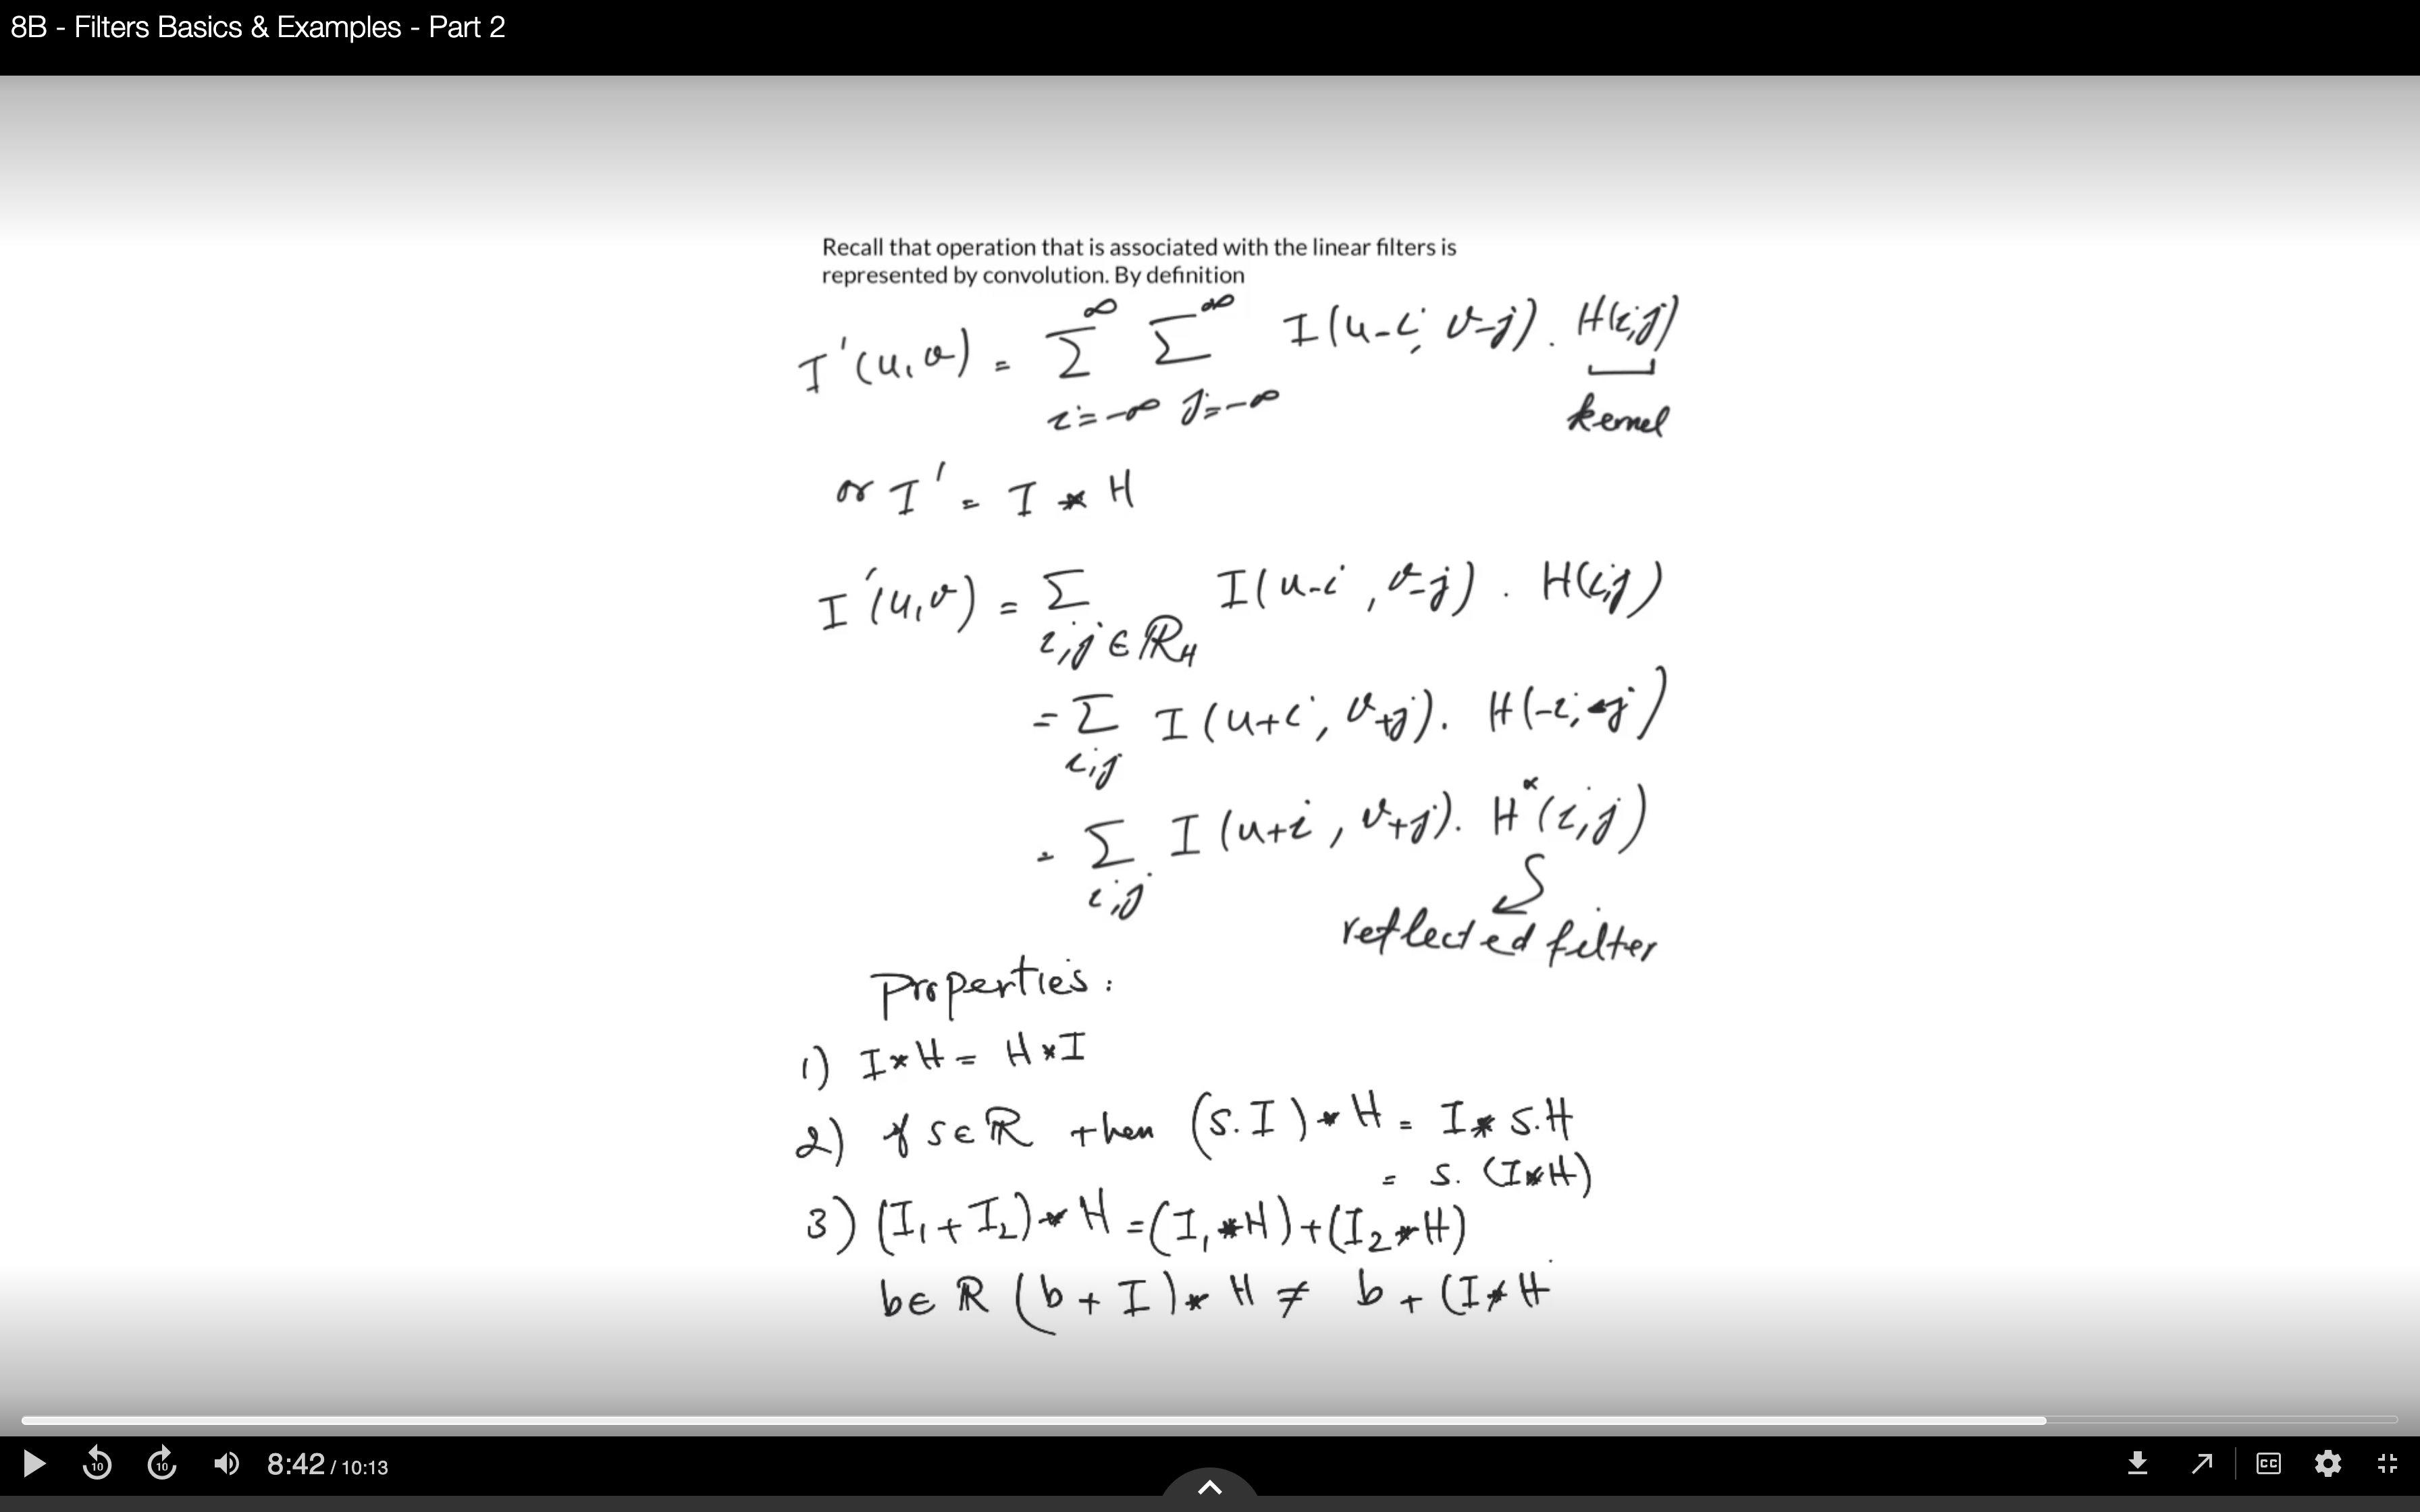 8B - Filters Basics & Examples - Part 2
Recall that operation that is associated with the linear filters is
represented by convolution. By definition
I'(u,v) = ∑_{i=-∞}^{∞} ∑_{j=-∞}^{∞} I(u-i, v-j) . H(i,j)
kernel
or I' = I * H
I'(u,v) = ∑_{i,j ∈ R_H} I(u-i, v-j) . H(i,j)
= ∑_{i,j} I(u+i, v+j) . H(-i,-j)
= ∑_{i,j} I(u+i, v+j) . H*(i,j)
reflected filter
Properties:
1) I * H = H * I
2) if s ∈ ℝ then (s.I) * H = I * s.H
= s. (I * H)
3) (I₁ + I₂) * H = (I₁ * H) + (I₂ * H)
b ∈ ℝ (b + I) * H ≠ b + (I * H
10 10 8:42 / 10:13 CC